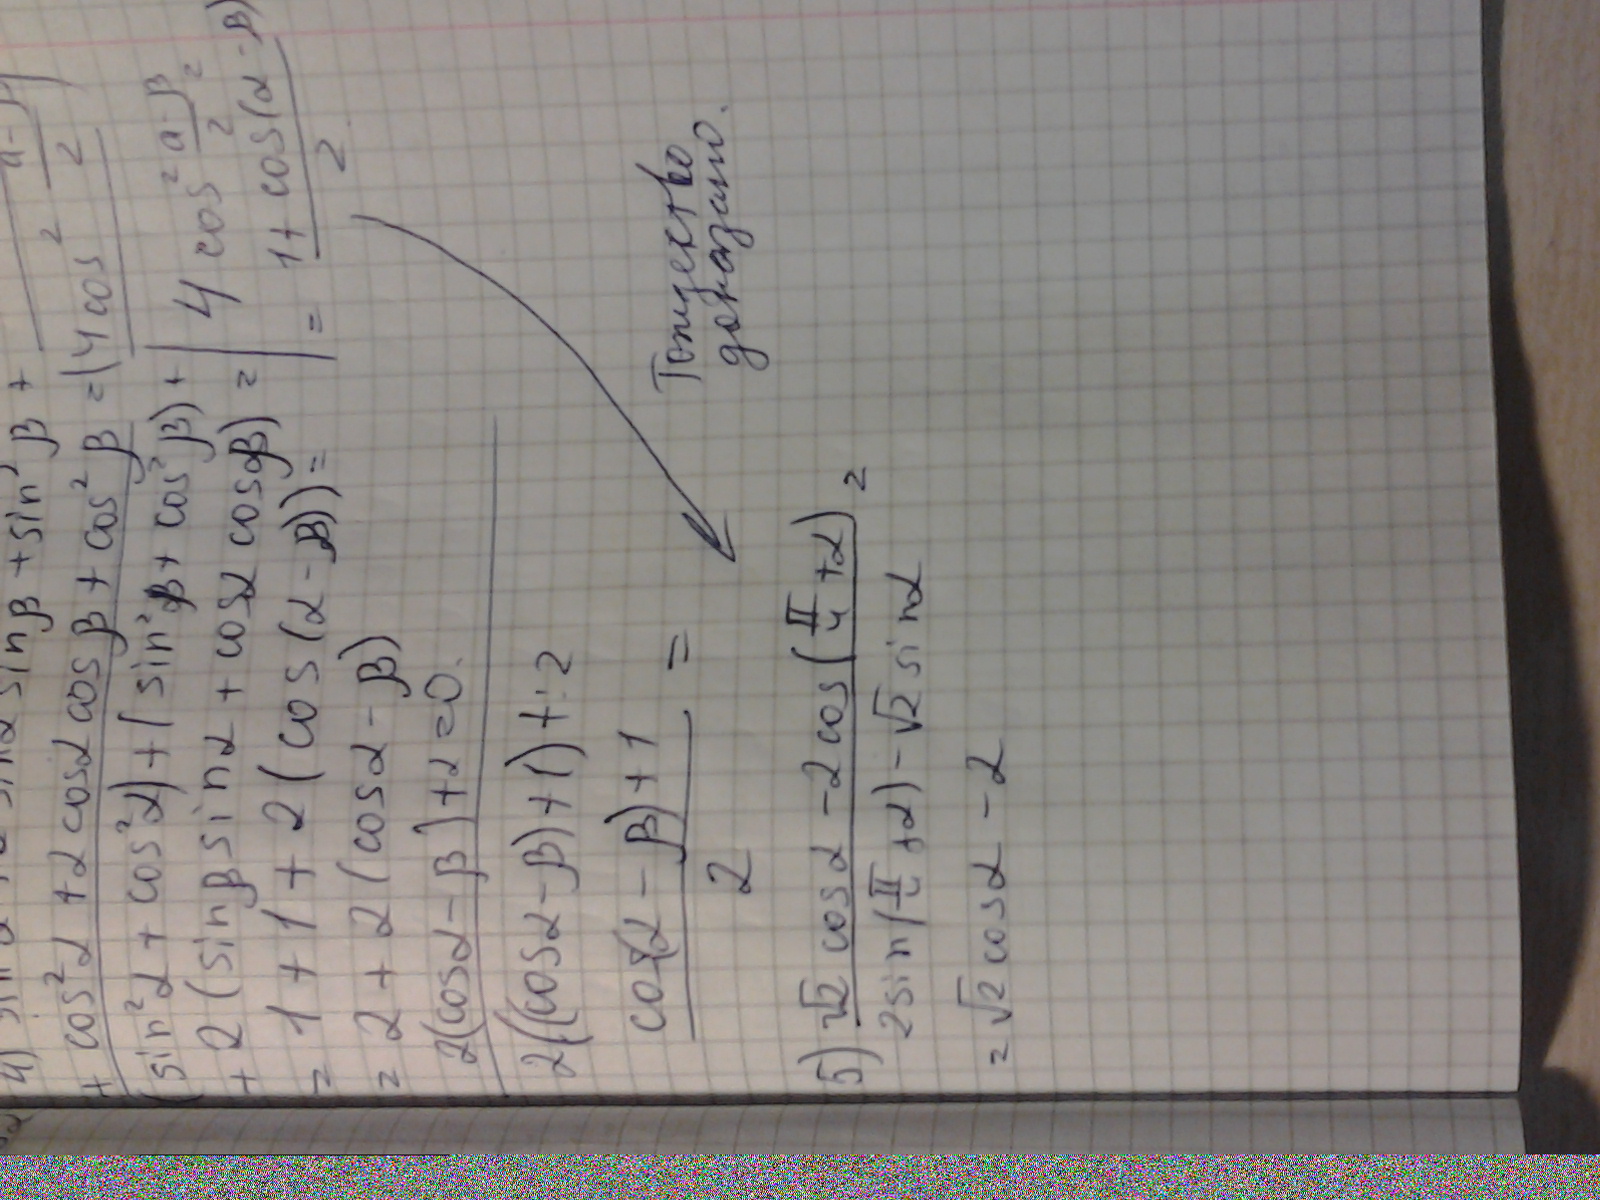 4) sin²α + 2 sinα sinβ + sin²β +
+ cos²α + 2 cosα cosβ + cos²β = (4cos² (α-β)/2)
(sin²α + cos²α) + (sin²β + cos²β) + | 4 cos² (α-β)/2 =
+ 2 (sinβ sinα + cosα cosβ) = | = (1 + cos(α-β))/2
= 1 + 1 + 2 (cos (α - β)) =
= 2 + 2 (cosα - β)
2(cosα - β) + 2 = 0.
2((cosα - β) + 1) + : 2
(cos(α - β) + 1)/2 =
Тождество
доказано.
5) (√2 cosα - 2 cos(π/4 + α))/(2 sin(π/4 + α) - √2 sinα) =
= √2 cosα - 2